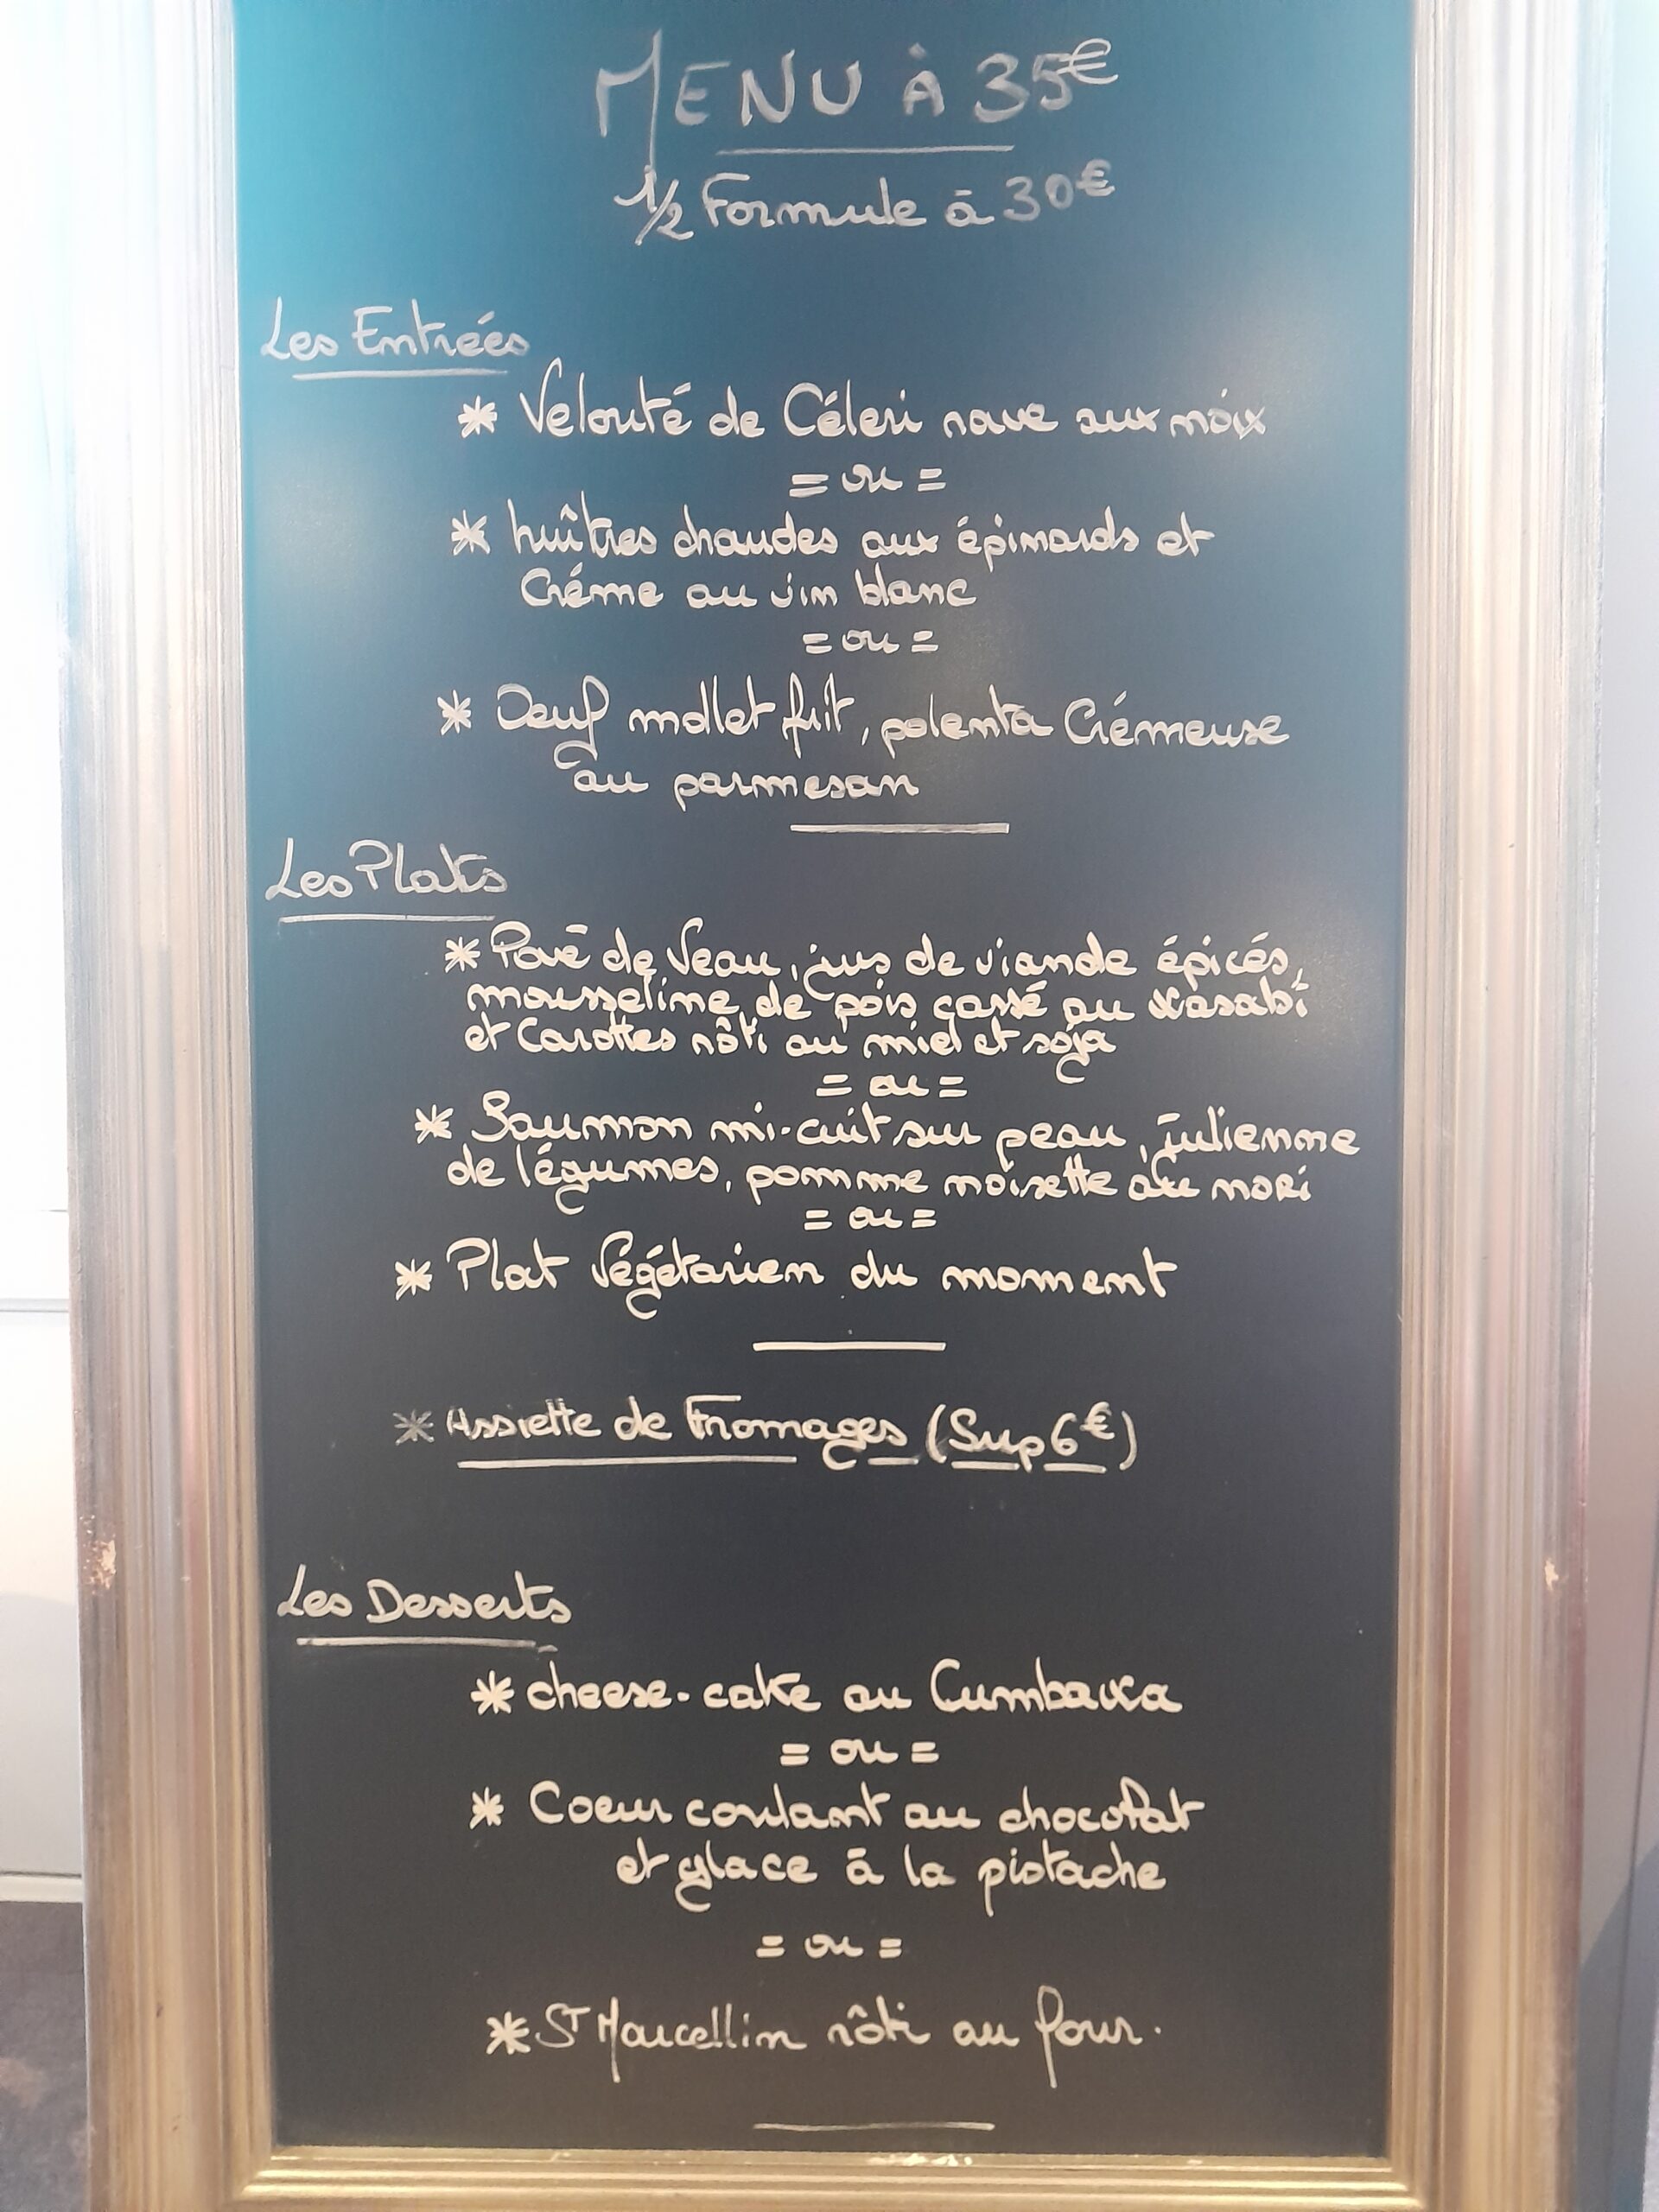 MENU À 35€
1/2 Formule à 30€
Les Entrées
* Velouté de Céleri rave aux noix
= ou =
* huîtres chaudes aux épinards et
Créme au vin blanc
= ou =
* Oeuf mollet frit, polenta Crémeuse
au parmesan
Les Plats
* Pavé de Veau, jus de viande épicés,
mousseline de pois cassé au wasabi
et Carottes rôti au miel et soja
= ou =
* Saumon mi-cuit sur peau, julienne
de légumes, pomme noisette au nori
= ou =
* Plat Végétarien du moment
* Assiette de Fromages (Sup 6€)
Les Desserts
* cheese-cake au Cumbawa
= ou =
* Coeur coulant au chocolat
et glace à la pistache
= ou =
* ST Marcellin rôti au four.